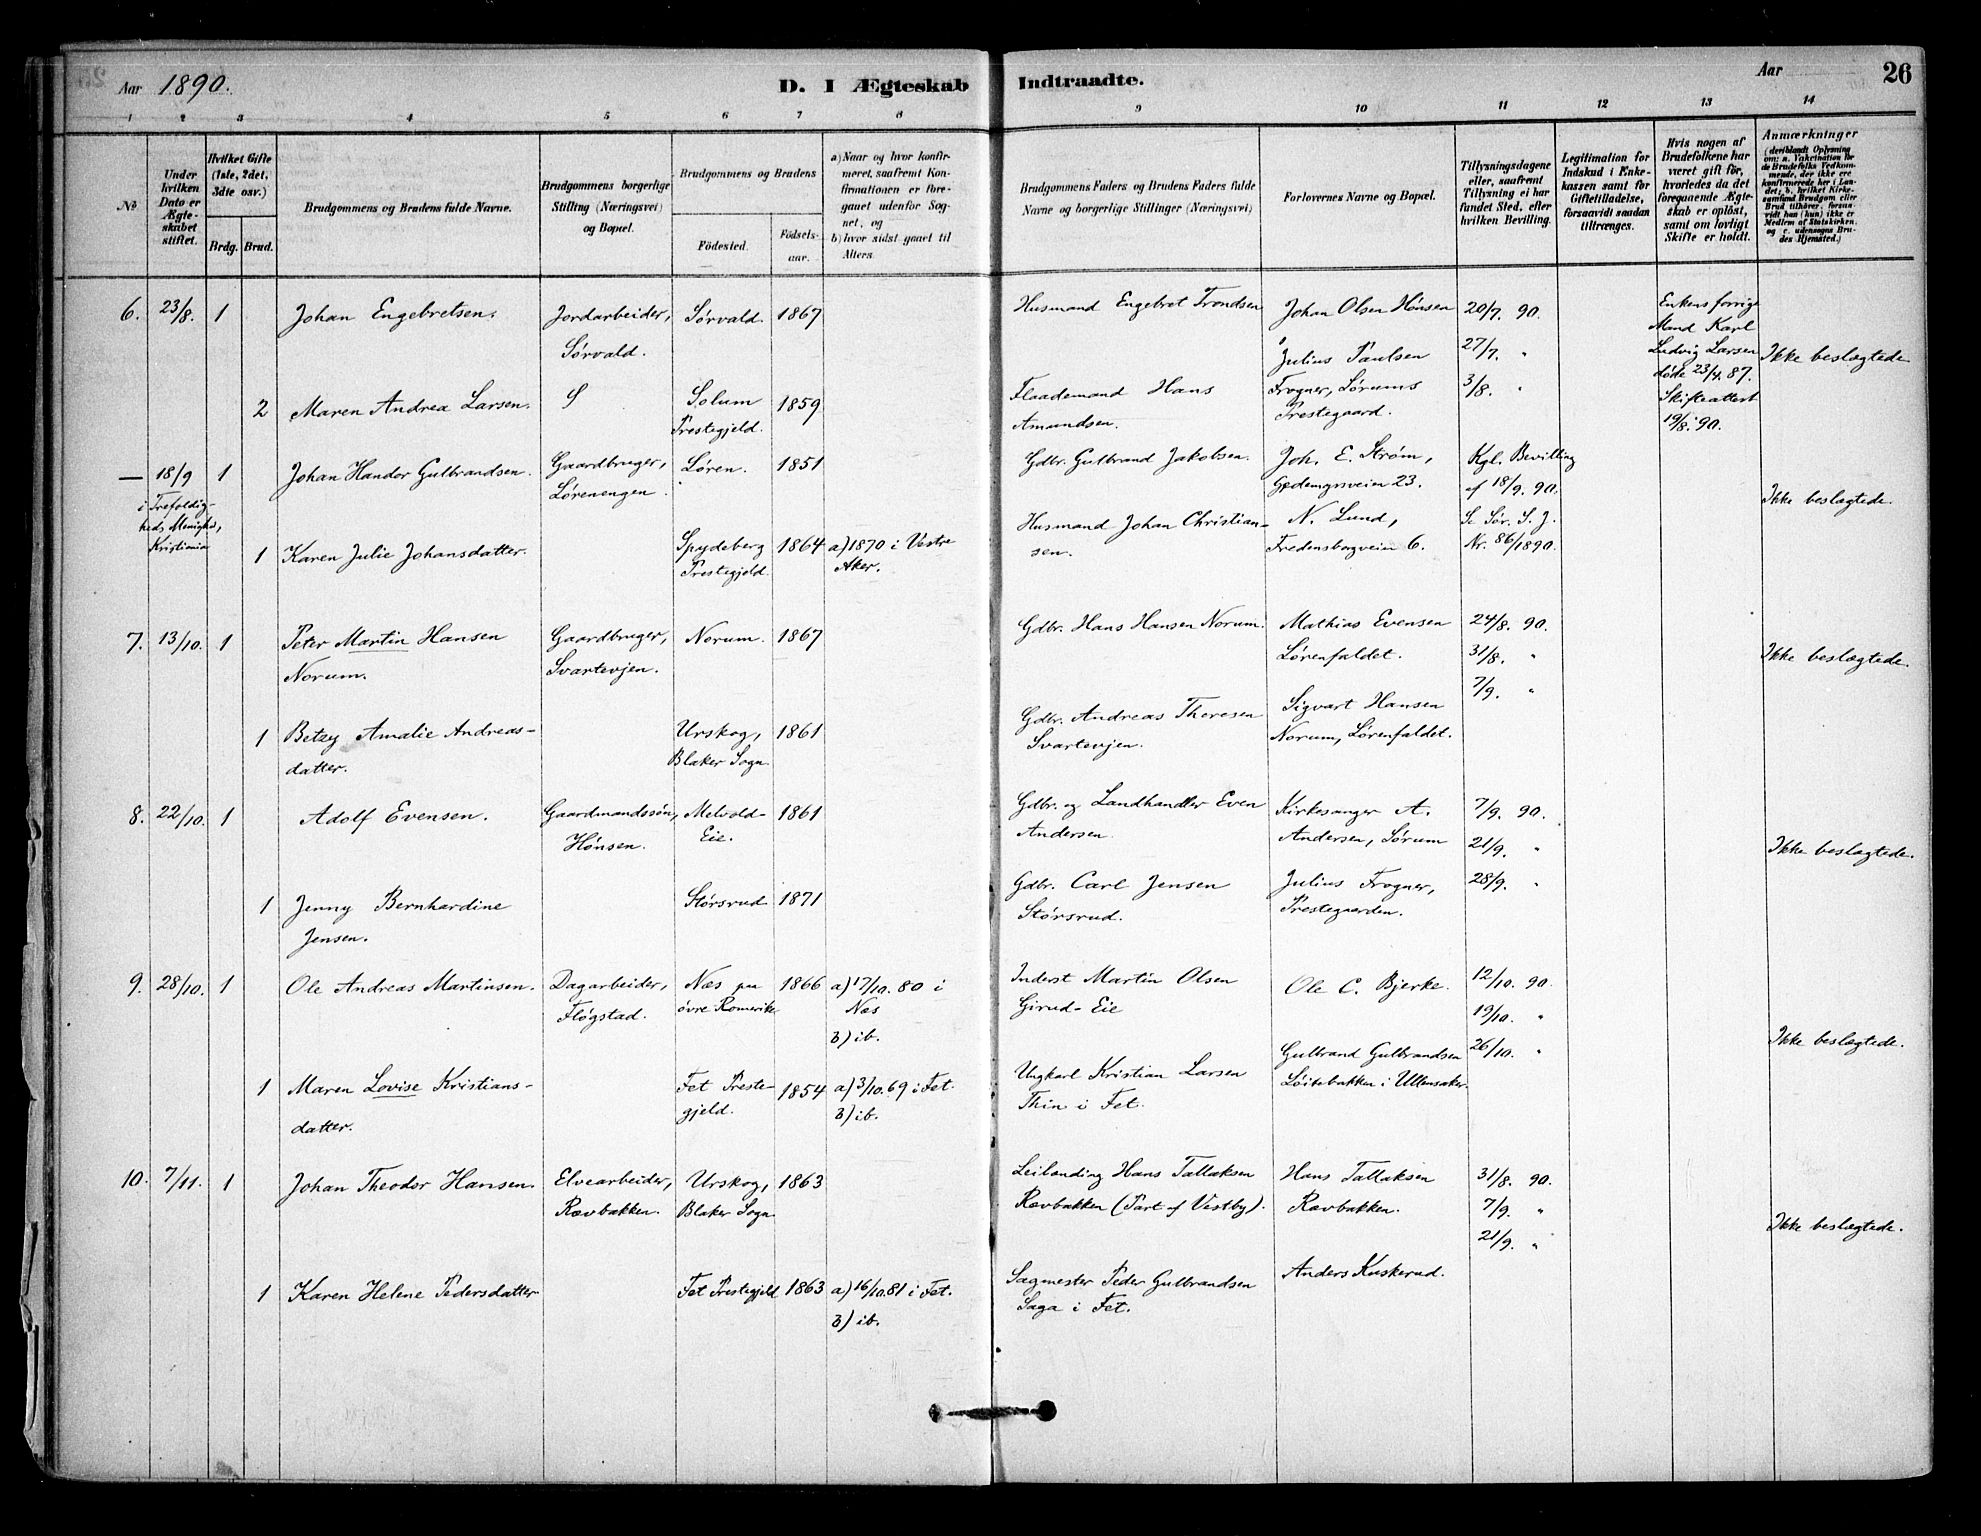 Aar 1890.
D. I Ægteskab Indtraadte.
Aar
26
1 2 3 4 5 6 7 8 9 10 11 12 13 14
No
Under hvilken Dato er Ægteskabet stiftet.
Hvilket Gifte (1ste, 2det, 3dte osv.)
Brdg. Brud.
Brudgommens og Brudens fulde Navne.
Brudgommens borgerlige Stilling (Næringsvei) og Bopæl.
Brudgommens og Brudens
Födested. Födselsaar.
a) Naar og hvor konfirmeret, saafremt Konfirmationen er foregaaet udenfor Sognet, og
b) hvor sidst gaaet til Alters.
Brudgommens Faders og Brudens Faders fulde Navne og borgerlige Stillinger (Næringsvei)
Forlovernes Navne og Bopæl.
Tillysningsdagene eller, saafremt Tillysning ei har fundet Sted, efter hvilken Bevilling.
Legitimation for Indskud i Enkekassen samt for Giftetilladelse, forsaavidt saadan tiltrænges.
Hvis nogen af Brudefolkene har været gift før, hvorledes da det foregaaende Ægteskab er oplöst, samt om lovligt Skifte er holdt.
Anmærkninger
(deriblandt Oplysning om: a. Vaksination for de Brudefolks Vedkommende, der ikke ere konfirmerede her i Landet; b. hvilket Kirkesamfund Brudgom eller Brud tilhører, forsavidt han (hun) ikke er Medlem af Statskirken, og c. udensogns Brudes Hjemsted.)
6. 23/8. 1 Johan Engebretsen. Jordarbeider, Sørvald. Sørvald. 1867
Husmand Engebret Trondsen
Johan Olsen Hønsen
Julius Paulsen
Frogner, Sørums
Prestegaard.
20/7. 90.
27/7. "
3/8. "
Enkens forrige
Mand Karl
Ludvig Larsen
døde 23/4. 87.
Skifteattest
19/8. 90.
Ikke beslægtede
2 Maren Andrea Larsen. Solum Prestegjeld. 1859
Flaademand Hans
Amundsen.
— 18/9 i Trefoldigheds Menighed, Kristiania 1 Johan Handor Gulbrandsen. Gaardbruger, Lørenengen. Løren. 1851
Gdbr. Gulbrand Jakobsen.
Joh. E. Strøm,
23.
Kgl. Bevilling
af 18/9. 90.
Se Sør. S. J.
Nr. 86/1890.
Ikke beslægtede.
1 Karen Julie Johansdatter. Spydeberg Prestegjeld. 1864 a) 1870 i Vestre Aker.
Husmand Johan Christiansen.
N. Lund,
Fredensborgveien 6.
7. 13/10. 1 Peter Martin Hansen Norum. Gaardbruger, Svartevjen. Norum. 1867
Gdbr. Hans Hansen Norum.
Mathias Evensen
Lørenfaldet.
24/8. 90.
31/8. "
7/9. "
Ikke beslægtede.
1 Betzy Amalie Andreasdatter. Urskog, Blaker Sogn. 1861
Gdbr. Andreas Thoresen
Svartevjen.
Sigvart Hansen
Norum, Lørenfaldet.
8. 22/10. 1 Adolf Evensen. Gaardmandssøn, Hønsen. Melvold-Eie. 1861
Gdbr. og Landhandler Even
Andersen.
Kirkesanger A.
Andersen, Sørum
7/9. 90.
21/9. "
28/9. "
Ikke beslægtede.
1 Jenny Bernhardine Jensen. Størsrud 1871
Gdbr. Carl Jensen
Størsrud.
Julius Frogner,
Prestegaarden.
9. 28/10. 1 Ole Andreas Martinsen. Dagarbeider, Fløgstad. Næs paa øvre Romerike 1866 a) 17/10. 80 i Næs b) ib.
Inderst Martin Olsen
Girud-Eie
Ole C. Bjerke.
12/10. 90.
19/10. "
26/10. "
Ikke beslægtede.
1 Maren Lovise Kristiansdatter. Fet Prestegjeld. 1854 a) 3/10. 69 i Fet. b) ib.
Ungkarl Kristian Larsen
Thin i Fet.
Gulbrand Gulbrandsen
Løitebakken i Ullensaker.
10. 7/11. 1 Johan Theodor Hansen. Elvearbeider, Rævbakken. Urskog, Blaker Sogn 1863
Leilending Hans Tallaksen
Rævbakken (Part af Vestby).
Hans Tallaksen
Rævbakken.
31/8. 90.
7/9. "
21/9. "
Ikke beslægtede.
1 Karen Helene Pedersdatter Fet Prestegjeld 1863 a) 16/10. 81 i Fet. b) ib.
Sagmester Peder Gulbrandsen
Saga i Fet.
Anders Kuskerud.